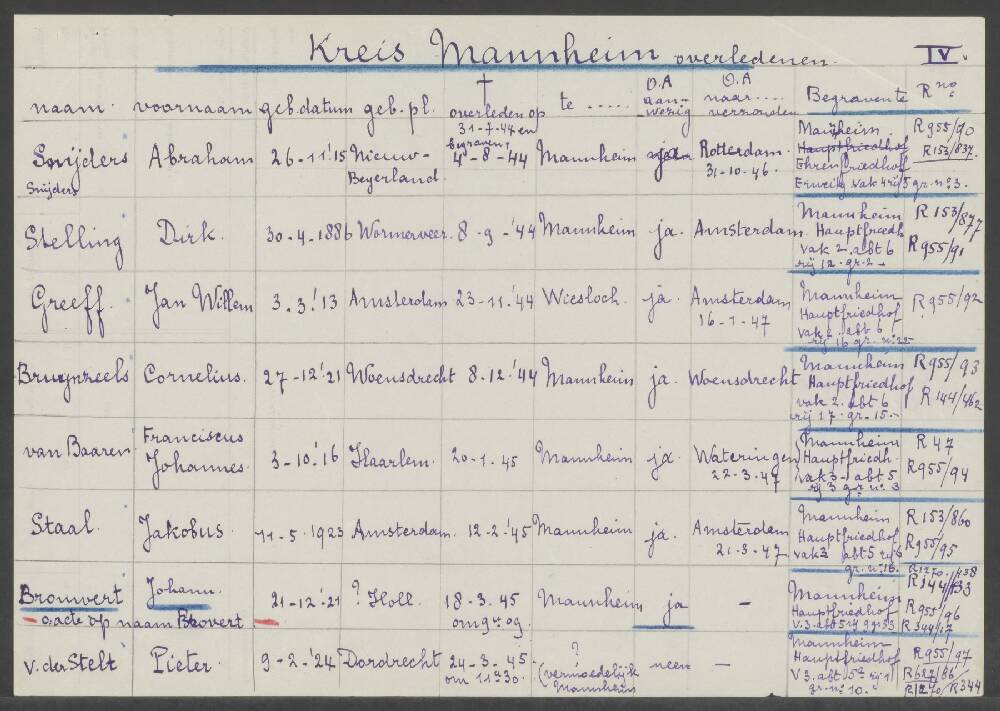 Kreis Mannheim overledenen. IV.
naam. voornaam geb.datum geb.pl. † overleden op te ..... O.A aanwezig O.A naar.... verzonden Begraven te R no.
Snijders Abraham 26-11-'15 Nieuw-Beyerland. 31-7-44 en begraven 4-8-44 Mannheim ja Rotterdam. 31-10-46. Mannheim Hauptfriedhof Ehrenfriedhof vak 4 rij 5 gr. no. 3. R955/90 R153/837.
Snijders
Stelling Dirk. 30-4-1886 Wormerveer. 8-9-'44 Mannheim ja. Amsterdam. Mannheim Hauptfriedh vak 2. abt 6 rij 12. gr. 2 - R153/877 R955/91
Greeff. Jan Willem 3.3.'13 Amsterdam 23-11-'44 Wiesloch. ja. Amsterdam 16-1-47 Mannheim Hauptfriedhof vak 2. abt 6 rij 16 gr. no. 25 R955/92
Bruynzeels Cornelius. 27-12-'21 Woensdrecht 8.12.'44 Mannheim ja. Woensdrecht Mannheim Hauptfriedhof vak 2. abt 6 rij 17-gr-15- R955/93 R144/462
van Baaren Franciscus Johannes. 3-10-'16 Haarlem. 20-1-45 Mannheim ja. Wateringen 22-3-47 Mannheim Hauptfriedh. vak 3- abt 5 rij 3 gr no. 3 R47 R955/94
Staal. Jakobus. 11-5-1923 Amsterdam. 12-2-'45 Mannheim ja. Amsterdam 21-3-47 Mannheim Hauptfriedhof vak 3 abt 5 rij 6 gr. no. 16. R153/860 R955/95
Brouwert Johann. 21-12-'21 ? Holl. 18-3-45 om 9 u 09 Mannheim ja - Mannheim Hauptfriedhof v. 3. abt 5 rij 9 gr 53 R1270/438 R144/133 R955/96 R344/17
- o.acte op naam Bovert -
v. der Stelt Pieter. 9-2-'24 Dordrecht 24-3-45. om 11 u 30. ? (vermoedelijk Mannheim neen - Mannheim Hauptfriedhof V 3. abt. 5 rij 1 gr. no. 10. R955/97 R627/86 R1270/R344